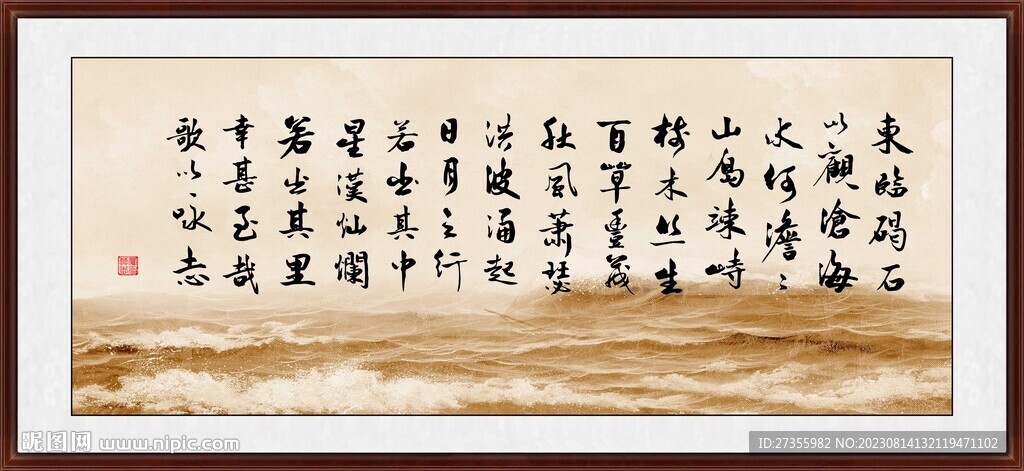 東臨碣石
以觀滄海
水何澹〻
山島竦峙
樹木丛生
百草豐茂
秋風蕭瑟
洪波涌起
日月之行
若出其中
星漢灿爛
若出其里
幸甚至哉
歌以咏志
昵图网 www.nipic.com
ID:27355982 NO:20230814132119471102